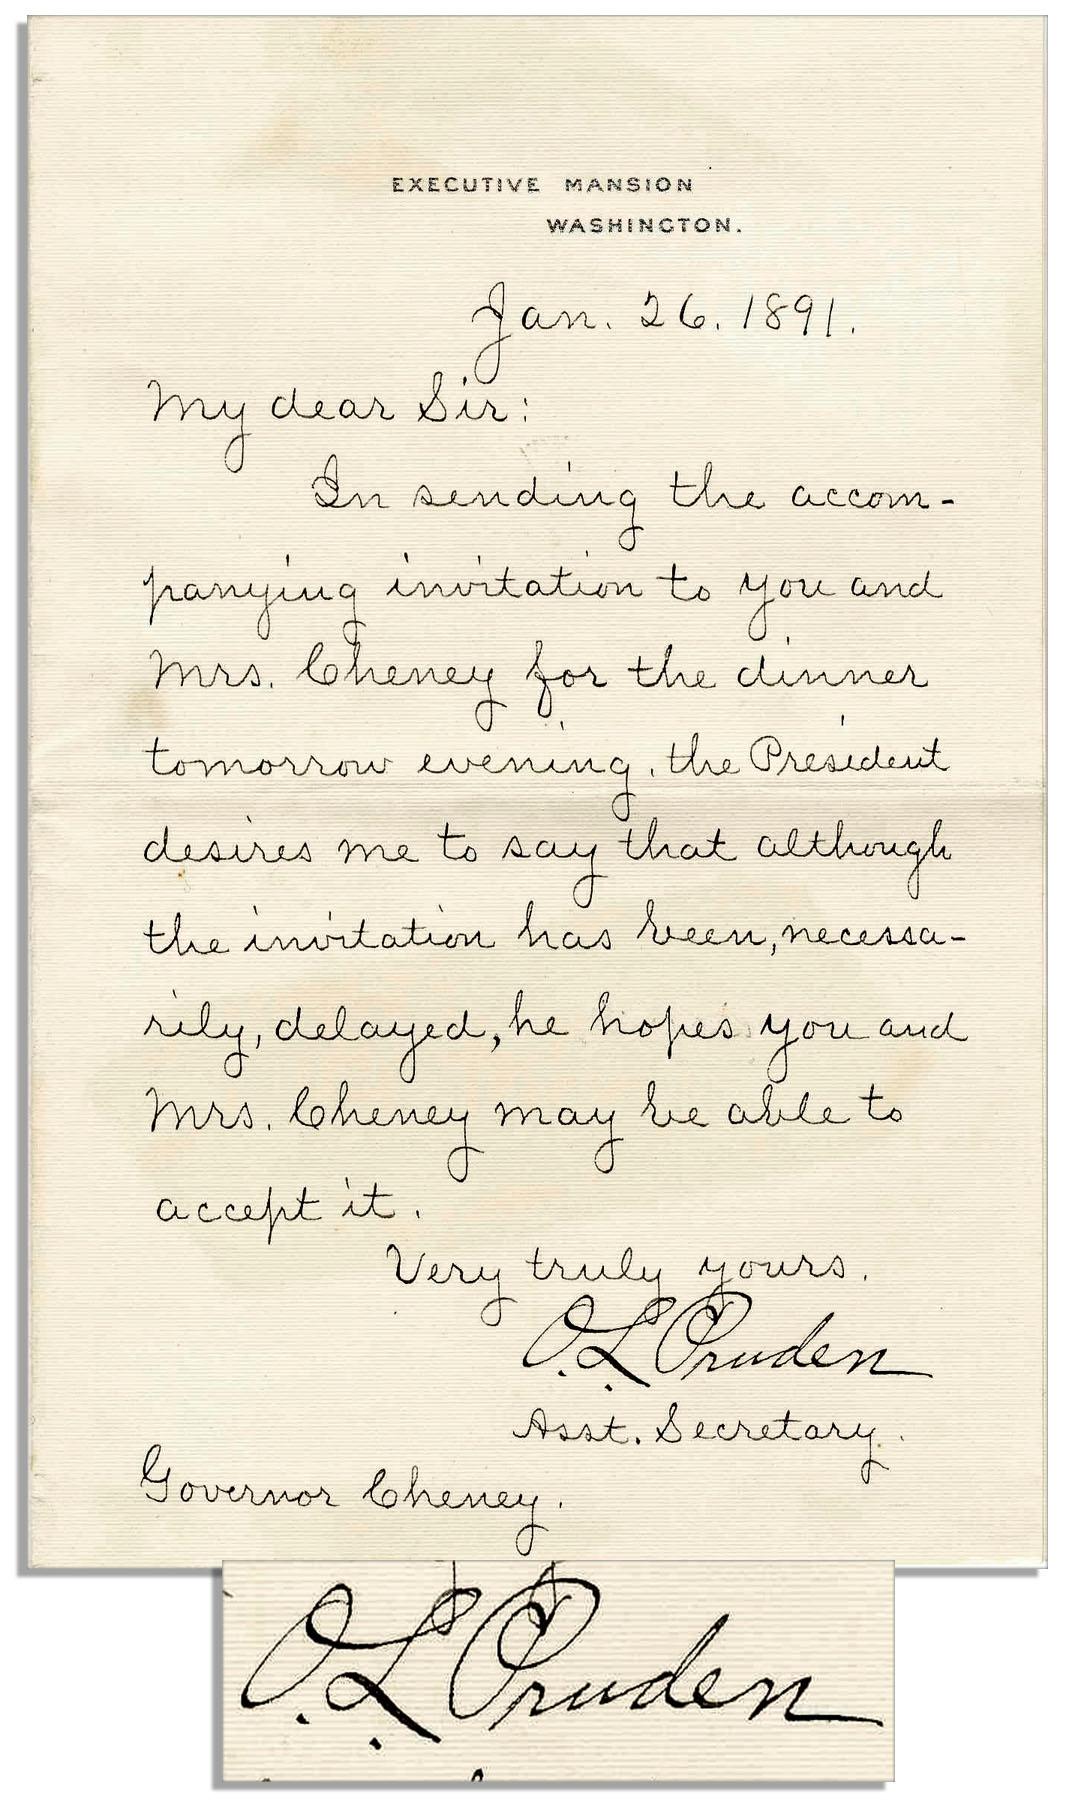 EXECUTIVE MANSION
WASHINGTON.
Jan. 26. 1891.
My dear Sir:
In sending the accom-
panying invitation to you and
Mrs. Cheney for the dinner
tomorrow evening, the President
desires me to say that although
the invitation has been, necessa-
rily, delayed, he hopes you and
Mrs. Cheney may be able to
accept it.
Very truly yours.
O. L. Pruden
Asst. Secretary.
Governor Cheney.
O. L. Pruden